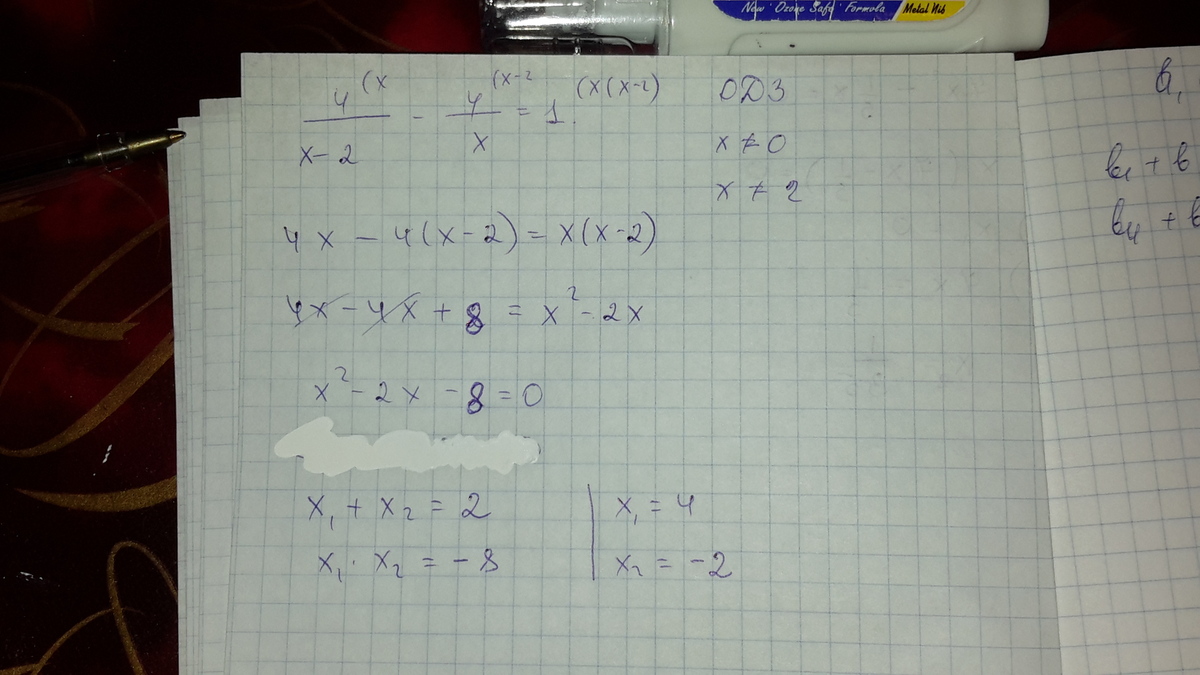 New · Ozone Safe · Formula Metal Nib
4 (x / x-2 - 4 (x-2 / x = 1 (x(x-2)
ОДЗ
x ≠ 0
x ≠ 2
4x - 4(x-2) = x(x-2)
4x - 4x + 8 = x² - 2x
x² - 2x - 8 = 0
x₁ + x₂ = 2
x₁ · x₂ = -8
x₁ = 4
x₂ = -2